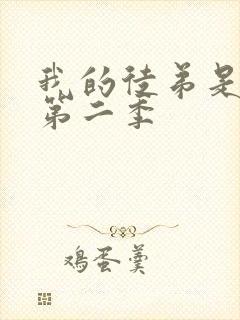 我的徒弟是
第二季
鸡蛋羹